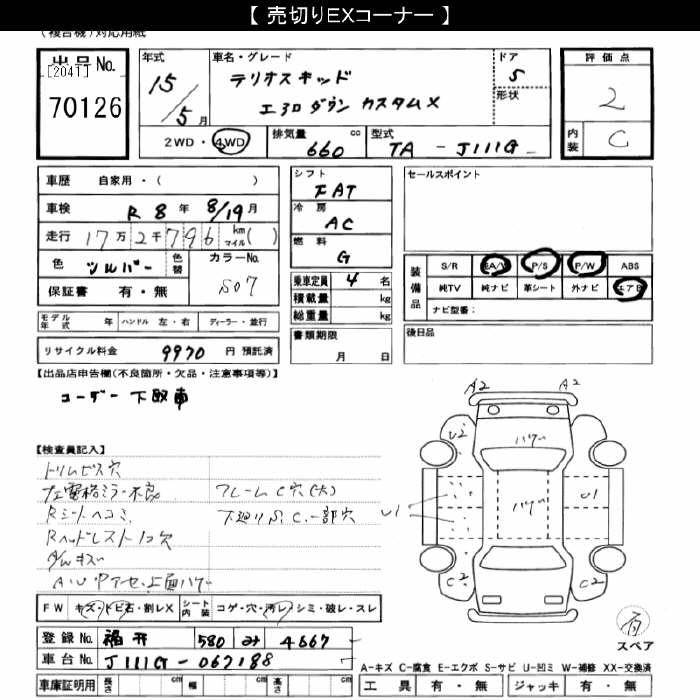 【 売切りEXコーナー 】
(複合機)対応用紙
出品No.
[2041]
70126
年式
15/5月
車名・グレード
テリオスキッド
エアロダウン カスタムX
ドア
5
形状
評価点
2
内装
C
2WD・4WD
排気量 660 cc
型式 TA - J111G
車歴 自家用・( )
車検 R 8 年 8/19 月
走行 17万2千796 km マイル( )
色 シルバー 色替
カラーNo. S07
保証書 有・無
シフト
FAT
冷房
AC
燃料
G
乗車定員 4 名
積載量 kg
総重量 kg
セールスポイント
装備品
S/R 純A/W P/S P/W ABS
純TV 純ナビ 革シート 外ナビ エアB
ナビ型番:
モデル年式 年 ハンドル 左・右 ディーラー・並行
書類期限
月 日
後日品
リサイクル料金 9970 円 預託済
【出品店申告欄(不良箇所・欠品・注意事項等)】
ユーザー下取車
【検査員記入】
トリムビス穴
左電格ミラー不良
Rシートヘコミ
Rヘッドレスト1コ穴
フレームC穴(大)
下廻りS.C.一部穴
A2
A2
U2
ハゲ
ハゲ
U1
U1
C2
C2
FW キズ・トビ石・割レX シート内装 コゲ・穴・汚レ・シミ・破レ・スレ
登録No. 福井 580 み 4667
車台No. J111G-062188
車庫証明用 長さ cm 幅 cm 高さ cm
有
スペア
A-キズ C-腐食 E-エクボ S-サビ U-凹ミ W-補修 XX-交換済
工具 有・無 ジャッキ 有・無